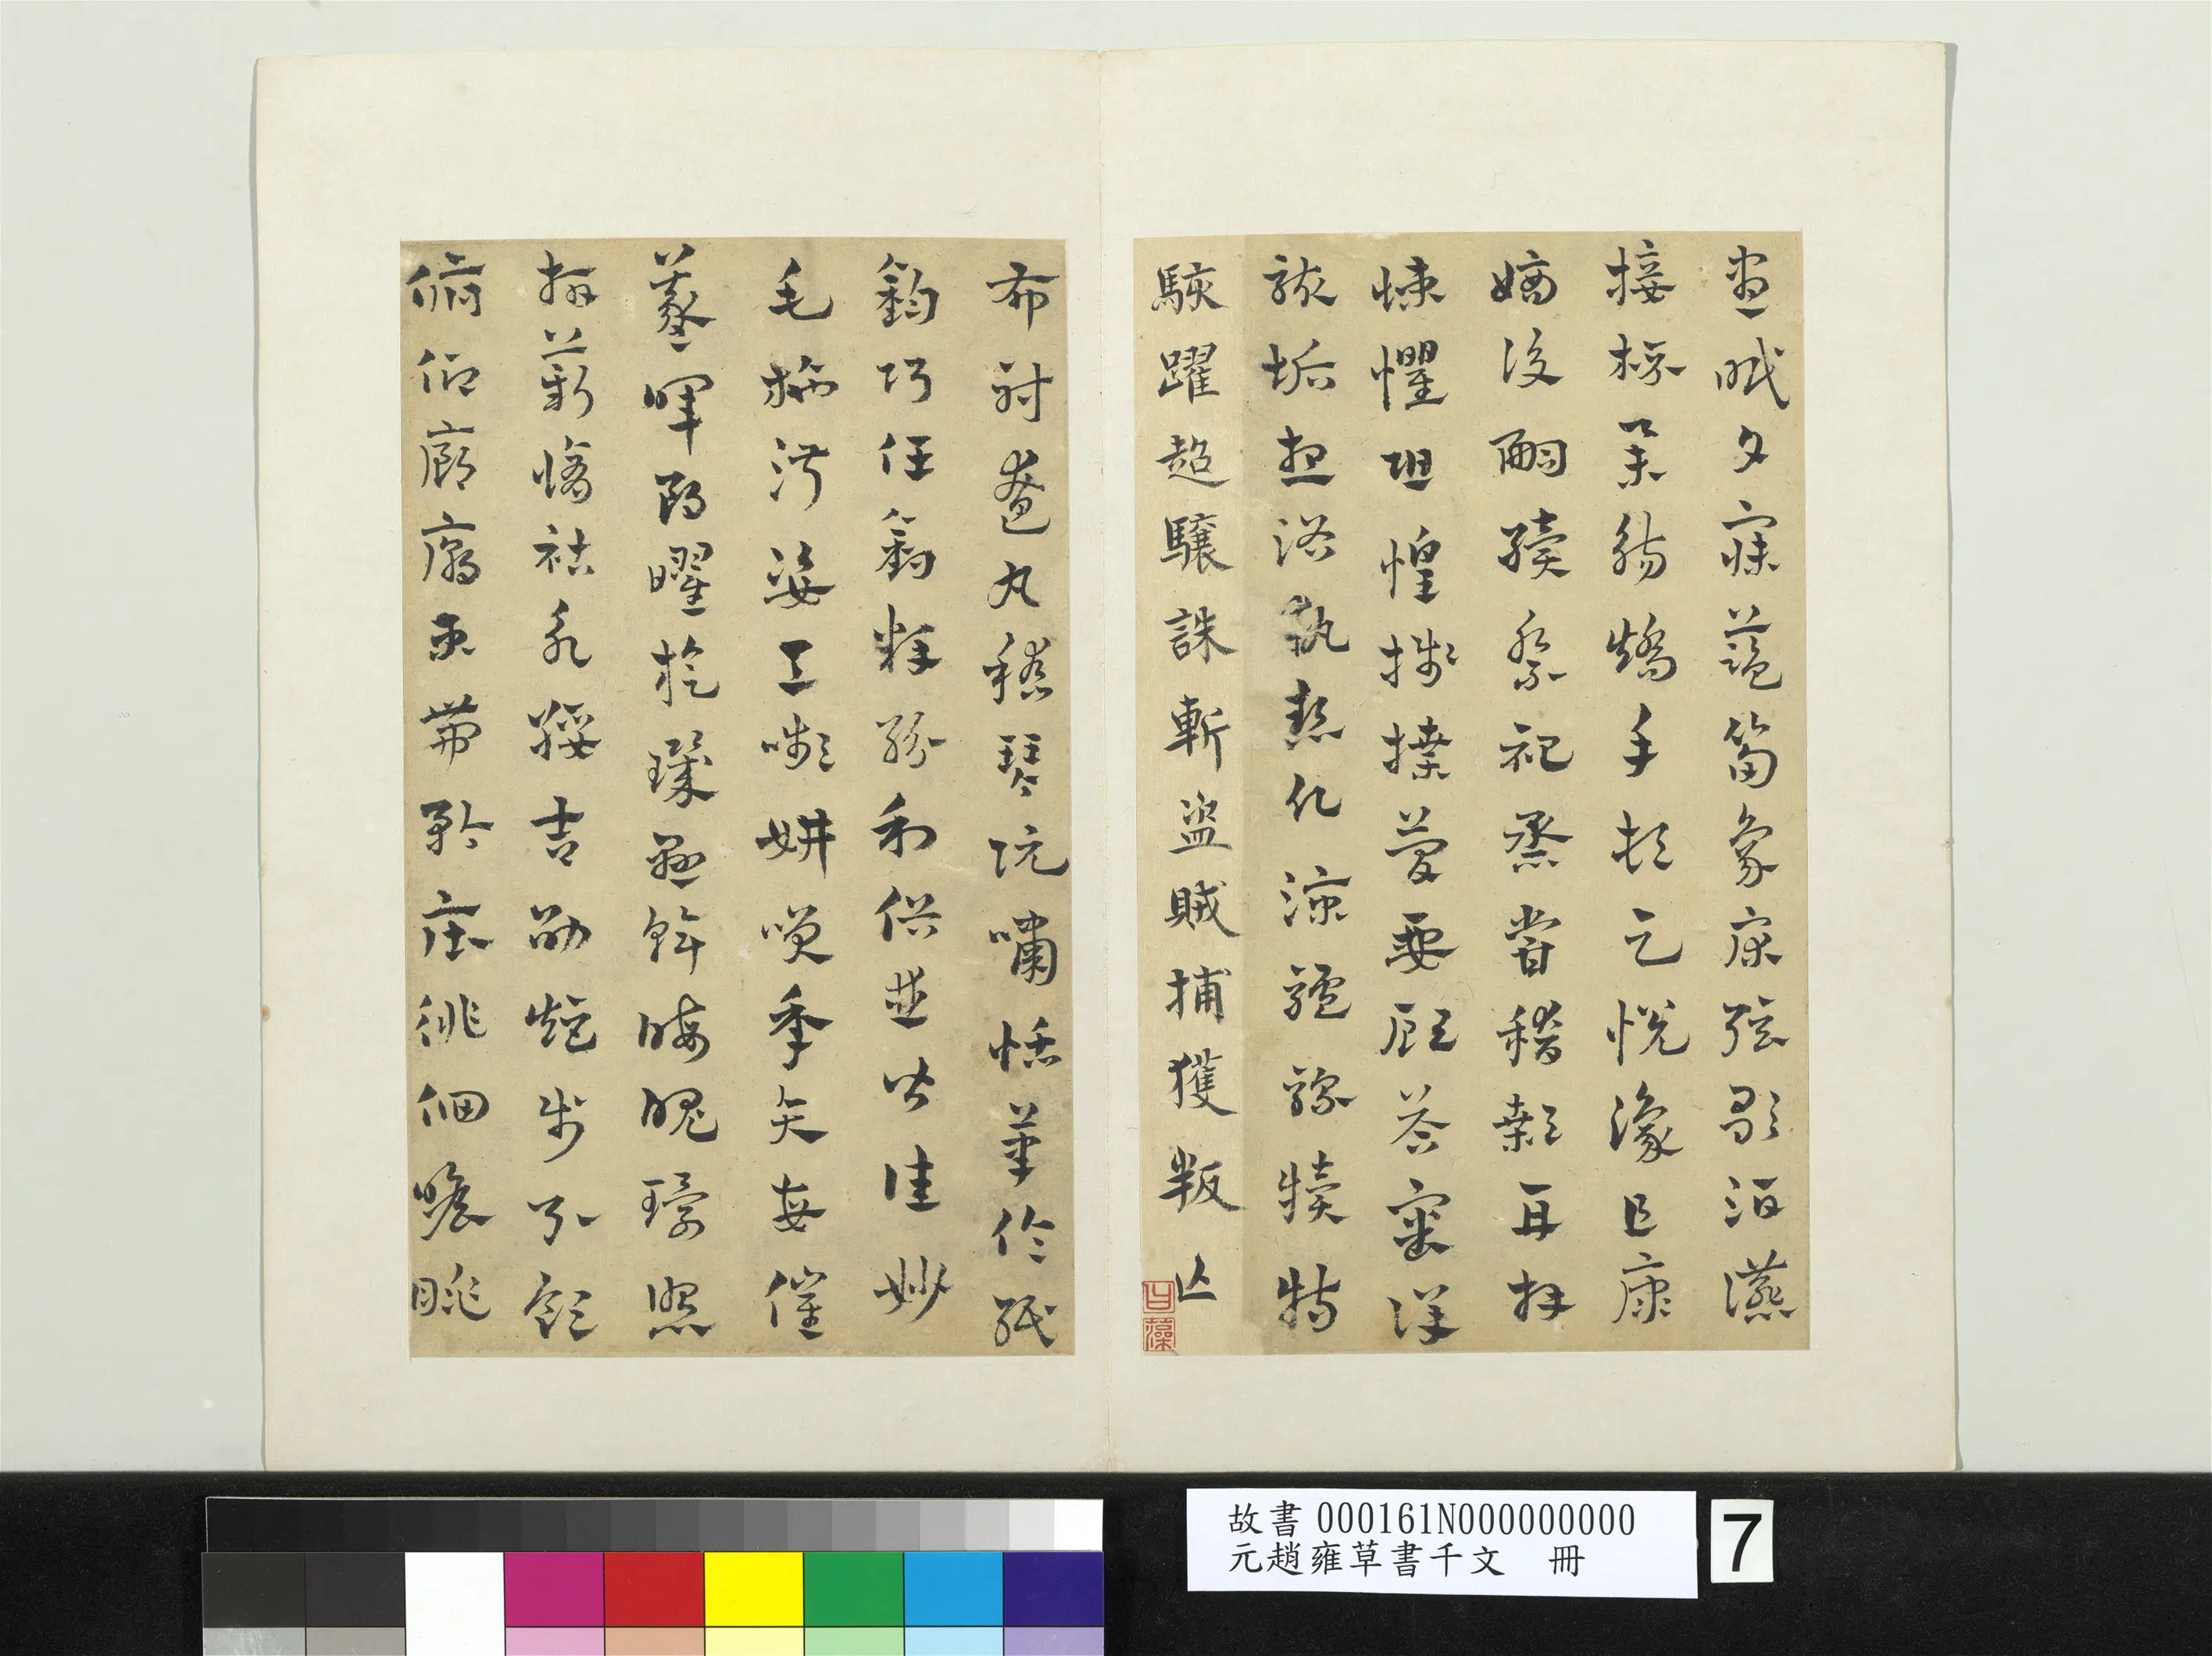 晝眠夕寐藍筍象床弦歌酒讌
接杯舉觴矯手頓足悅豫且康
嫡後嗣續祭祀蒸嘗稽顙再拜
悚懼恐惶牋牒簡要顧答審詳
骸垢想浴執熱願涼驢騾犢特
駭躍超驤誅斬盜賊捕獲叛亡
布射遼丸嵇琴阮嘯恬筆倫紙
鈞巧任釣釋紛利俗並皆佳妙
毛施淑姿工嚬妍笑年矢每催
羲暉朗曜旋璣懸斡晦魄環照
指薪脩祜永綏吉劭矩步引領
俯仰廊廟束帶矜莊徘徊瞻眺
故書 000161N000000000
元趙雍草書千文 冊
7